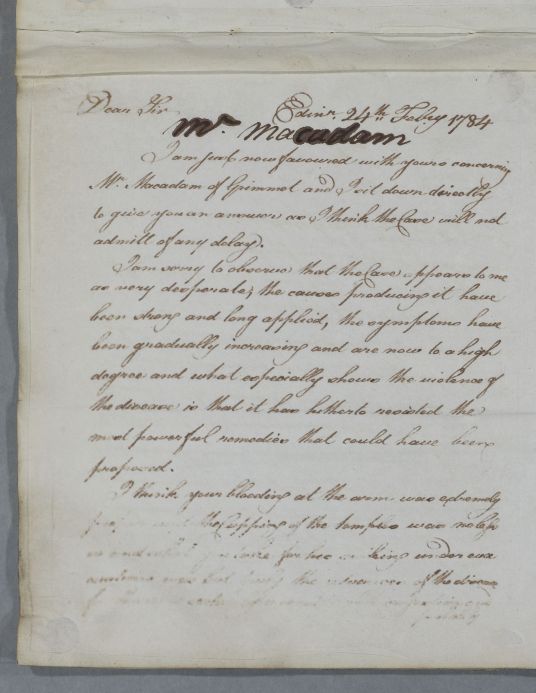 Dear Sir
Edinr. 24th. Febry 1784
Mr. Macadam
I am just now favoured with yours concerning
Mr. Macadam of Grimmet and I sit down directly
to give you an answer as I think the Case will not
admitt of any delay.
I am sorry to observe that the Case appears to me
as very desperate; the causes producing it have
been strong and long applied, the symptoms have
been gradually increasing and are now to a high
degree and what especially shows the violence of
the disease is that it has hitherto resisted the
most powerful remedies that could have been
proposed.
I think your bleeding at the arm was extremely
proper and the cupping of the temples was no less
under our
the advances of the disease